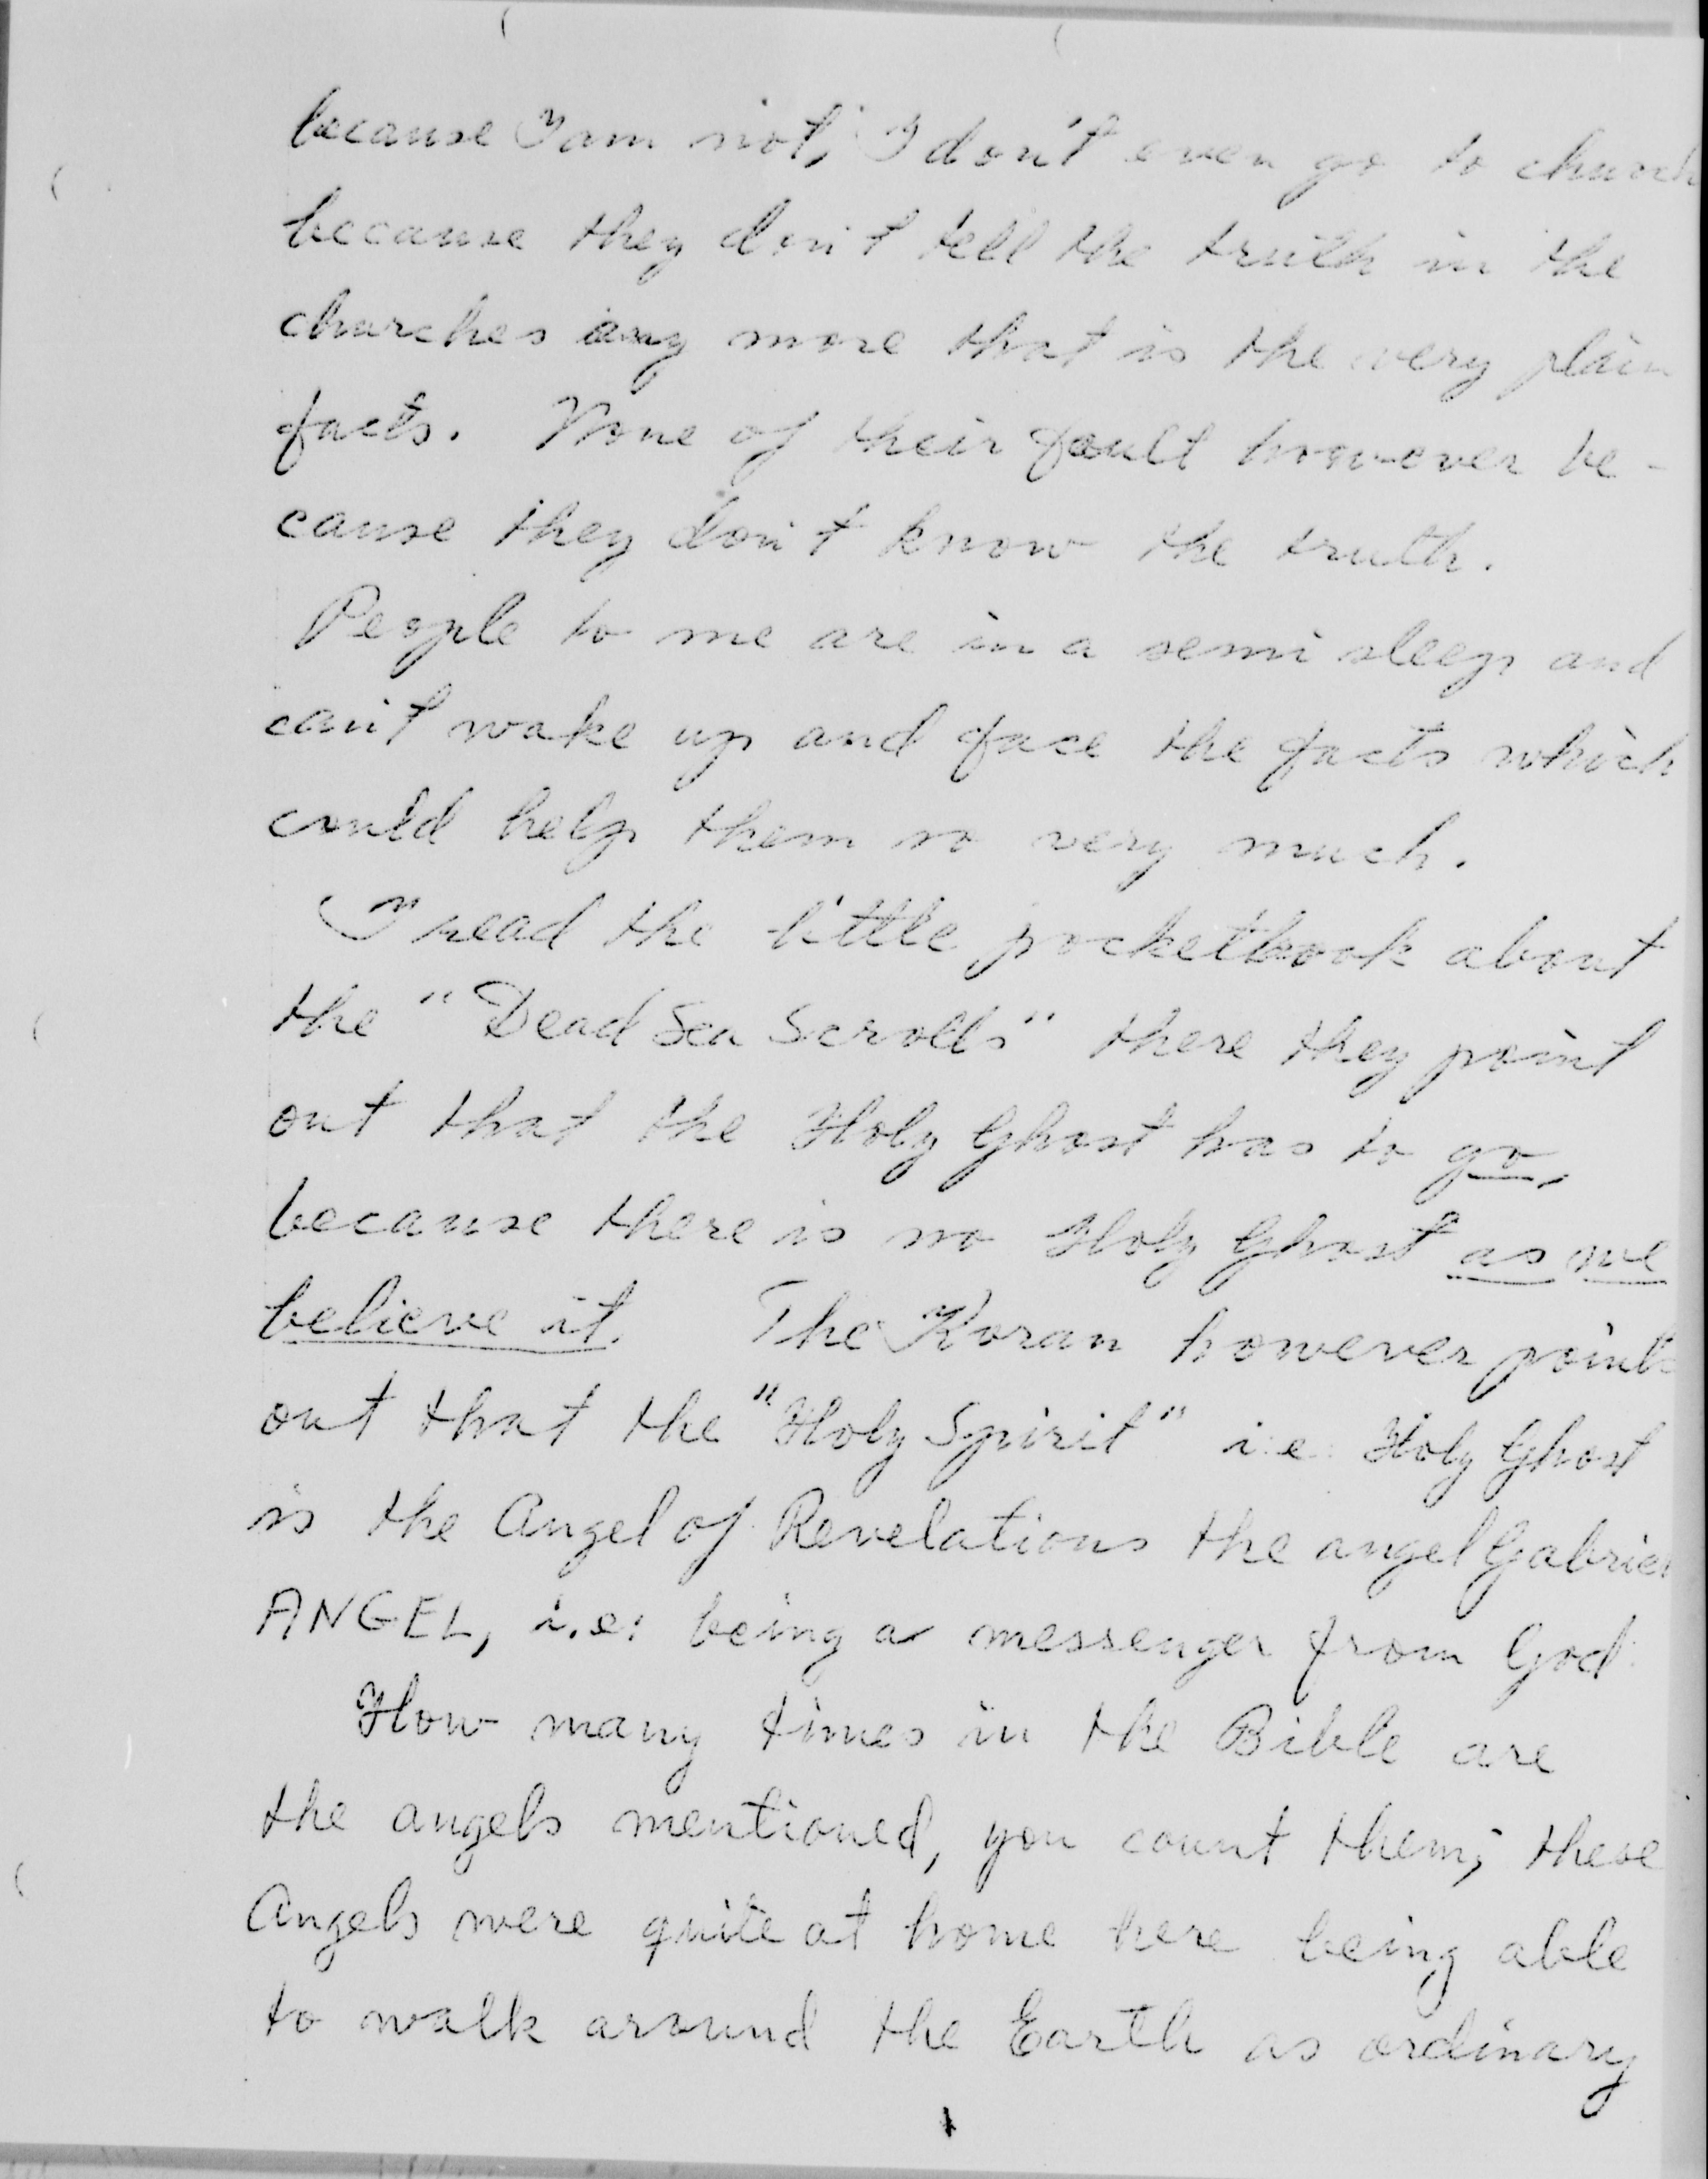 because I am not, I don't even go to church
because they don't tell the truth in the
churches any more that is the very plain
facts. None of their fault however be-
cause they don't know the truth.
People to me are in a semi sleep and
can't wake up and face the facts which
could help them so very much.
I read the little pocketbook about
the "Dead Sea Scrolls" there they point
out that the Holy Ghost has to go,
because there is no Holy Ghost as we
believe it. The Koran however points
out that the "Holy Spirit" i.e. Holy Ghost
is the Angel of Revelations the angel Gabriel
ANGEL, i.e: being a messenger from God.
How many times in the Bible are
the angels mentioned, you count them; these
Angels were quite at home here being able
to walk around the Earth as ordinary